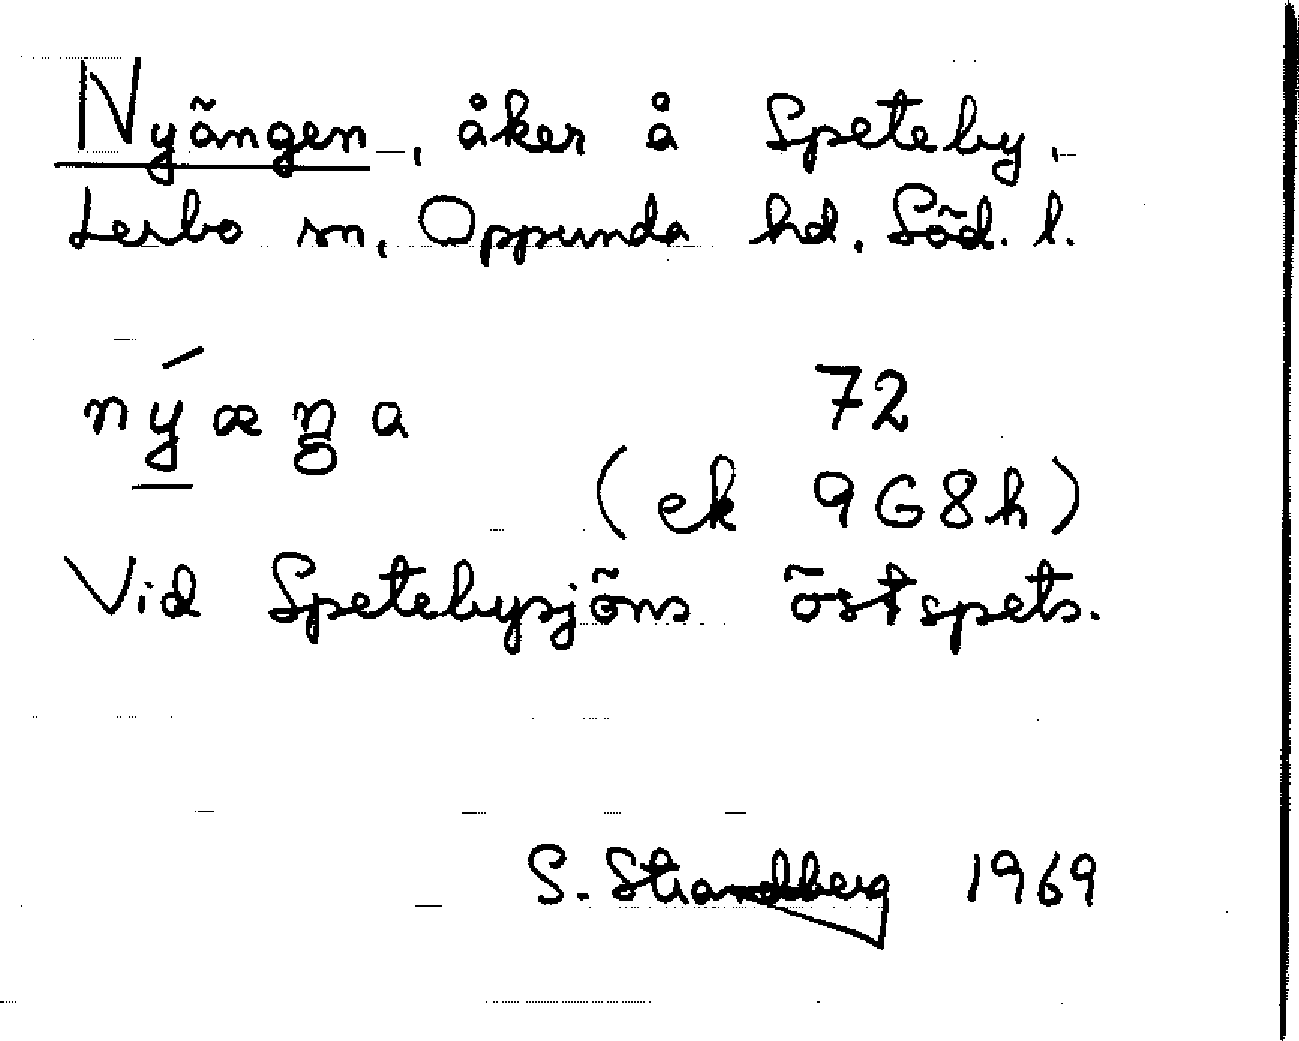 Nyängen, åker å Speteby,
Lerbo sn, Oppunda hd. Söd. l.
nýæŋa 72
(ek 9G8h)
Vid Spetebysjöns östspets.
S. Strandberg 1969